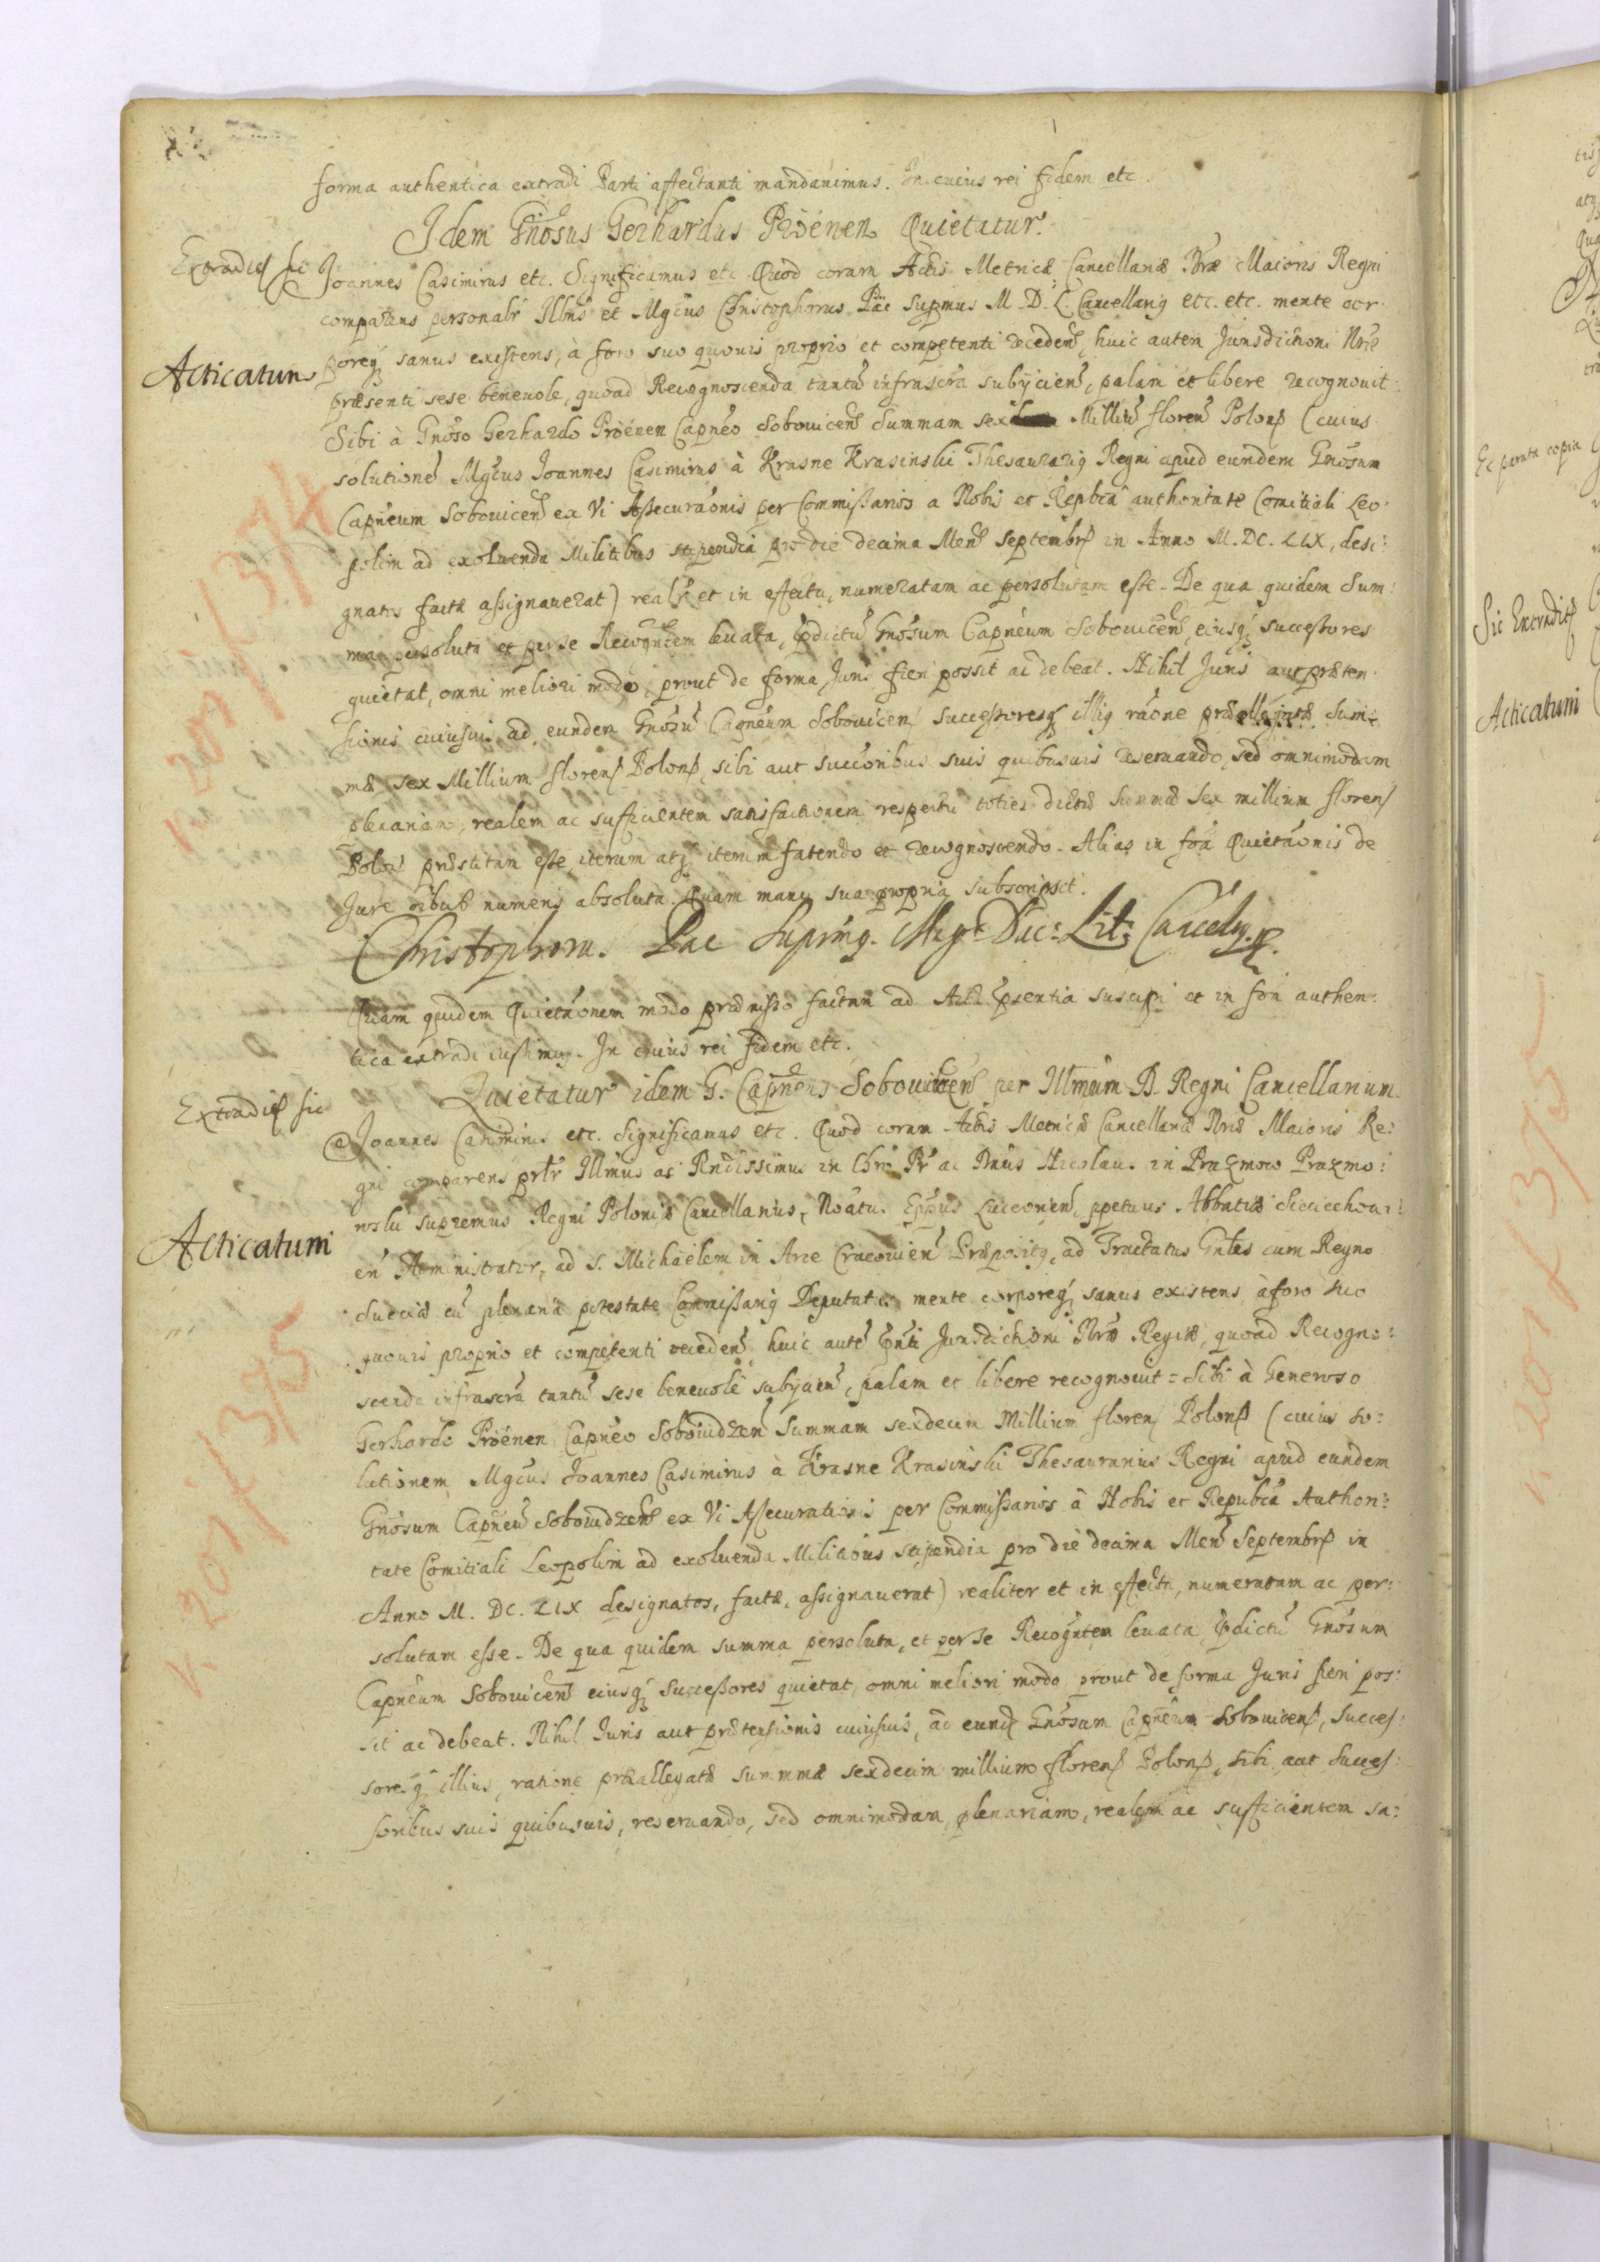 forma authentica extradi Parti affectanti mandavimus. In cuius rei fidem etc.
Idem Gnosus Gerhardus Pröenen Quietatur.
Extradit sic
Joannes Casimirus etc. Significamus etc. Quod coram Actis Metricæ Cancellariæ Nræ Maioris Regni
comparens personalr Illris et Mgcus Christophorus Pac Supmus M. D. L. Cancellarig etc. etc. mente cor-
poreq sanus existens, à foro suo quovis proprio et competenti recedens, huic autem Jurisdictioni Nræ
Acticatum
præsenti sese benevole, quoad Recognoscenda tantu infrascra subijciens, palam et libere recognovit:
Sibi à Gnoso Gerhardo Pröenen Capneo Sobovicens Summam sex Milliu florens Polon (cuius
solutione Mgcus Joannes Casimirus à Krasne Krasinski Thesaurarig Regni apud eundem Gnosum
Capneum Sobovicens ex Vi Assecuraonis per Commissarios a Nobis et Repbca authoritate Comitiali Leo-
polim ad exolvenda Militibus stipendia pro die decima Mens Septembr in Anno M. DC. LIX, desi:
gnatos factæ assignaverat) realr et in effectu, numeratam ac persolutam esse. De qua quidem Sum:
ma persoluta et per se Recognscem levata, pdictu Gnosum Capneum Sobovicens, eiusq successores
quietat, omni meliori modo, prout de forma Juris fieri possit ac debeat. Nihil Juris aut præten-
sionis cuiusvis ad eundem Gnosu Capneum Sobovicen successoresq illig raone præallegatæ Sum-
mæ sex Millium florens Polon, sibi aut succoribus suis quibusvis reservando, sed omnimodam
plenariam, realem ac sufficientem satisfactionem respectu toties dictæ Summæ sex millium florens
Polon præstitam esse, iterum atq iterum fatendo et recognoscendo. Alias in fora Quietaonis de
Jure oibus numeris absoluta. Quam manu sua propria subscripsit.
Christophorus Pac Supmg. Mag: Duc: Lit: Cancelr.
Quam quidem Quietaonem modo præmisso factam ad Acta psentia suscipi et in fora authen:
tica extradi iussimus. In cuius rei fidem etc.
Quietatur idem G. Capneus Sobovicens per Illmum D. Regni Cancellarium.
Extradit sic
Joannes Casimirus etc. Significamus etc. Quod coram Actis Metricæ Cancellariæ Nræ Maioris Re:
gni comparens prlr Illmus ac Rndissimus in Chro Pr ac Dnus Nicolaus in Prazmow Prazmo:
wski supremus Regni Poloniæ Cancellarius, Noatus Eppus Luceoriens, ppetuus Abbatiæ Sieciechovi:
Acticatum
en Administrator, ad S. Michaelem in Arce Cracovien Præpositg, ad Tractatus Gnles cum Regno
Sueciæ cu plenaria potestate Commissarig Deputatus mente corporeq sanus existens à foro suo
quovis proprio et competenti recedens huic aute pnti Jurisdictioni Nræ Regiæ, quoad Recogno:
scenda infrascra tantu sese benevole subijciens, palam et libere recognovit: Sibi à Generoso
Gerhardo Pröenen Capneo Sobowidzen Summam sexdecim Millium floren Polon (cuius so:
lutionem Mgcus Joannes Casimirus à Krasne Krasinski Thesaurarius Regni apud eundem
Gnosum Capneu Sobowidzens ex Vi Assecurationis per Commissarios à Nobis et Repubca Authori:
tate Comitiali Leopolim ad exolvenda Militibus stipendia pro die decima Mens Septembr in
Anno M. DC. LIX designatos, factæ, assignaverat) realiter et in effectu, numeratam ac per:
solutam esse. De qua quidem summa persoluta, et per se Recognten levata, pdictu Gnosum
Capneum Sobovicens eiusq Successores quietat, omni meliori modo prout de forma Juris fieri pos:
sit ac debeat. Nihil Juris aut prætensionis cuiusvis, ad eund Gnosum Capneum Sobovicens, Succes:
soresq illius, ratione præallegatæ summæ sexdecim millium floren Polon, sibi aut Succes:
soribus suis quibusvis, reservando, sed omnimodam, plenariam, realem ac sufficientem sa:
n. 201/374
n. 201/375
Et parata copia
Sic Extradit
Acticatum